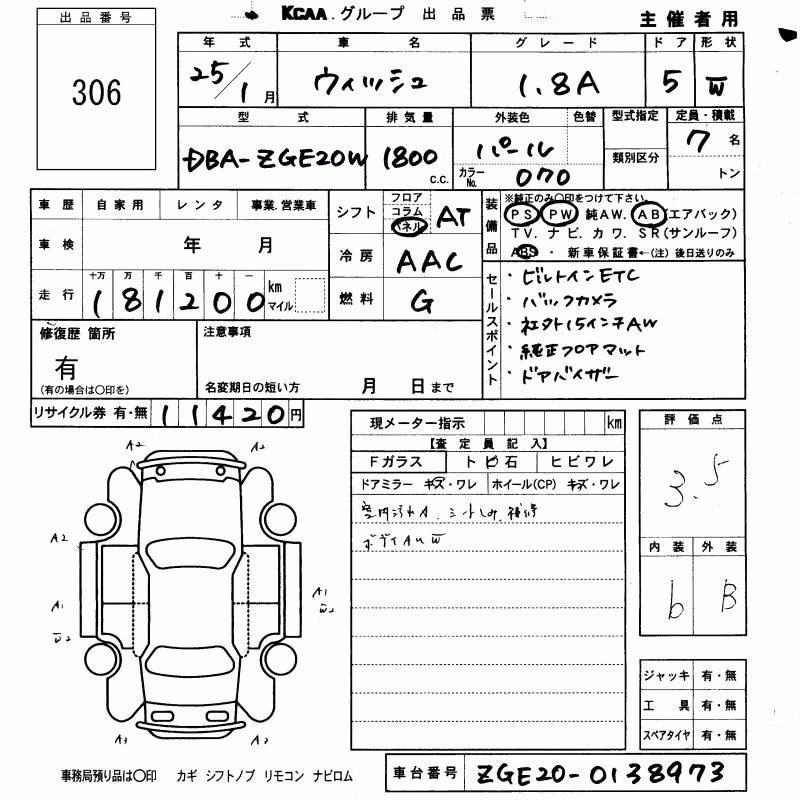 KCAA.グループ 出品票
主催者用
出品番号
306
年式 車名 グレード ドア 形状
25/1月 ウィッシュ 1.8A 5 W
型式 排気量 外装色 色替 型式指定 定員・積載
DBA-ZGE20W 1800 c.c. パール カラーNo. 070 類別区分 7名 トン
車歴 自家用 レンタ 事業.営業車
車検 年 月
走行 十万 万 千 百 十 一 km マイル
181200
シフト フロア コラム パネル AT
冷房 AAC
燃料 G
装備品 ※純正のみ○印をつけて下さい。
PS PW 純AW. AB(エアバック)
TV. ナビ. カワ. SR(サンルーフ)
ABS・ 新車保証書←(注)後日送りのみ
セールスポイント
・ビルトインETC
・バックカメラ
・社外15インチAW
・純正フロアマット
・ドアバイザー
修復歴 箇所
有
(有の場合は○印を)
注意事項
名変期日の短い方 月 日まで
リサイクル券 有・無 11420円
現メーター指示 km
【査定員記入】
Fガラス トビ石 ヒビワレ
ドアミラー キズ・ワレ ホイール(CP) キズ・ワレ
室内汚れA. シートしみ. 補修
ボディAUW
評価点
3.5
内装 外装
b B
ジャッキ 有・無
工具 有・無
スペアタイヤ 有・無
A2 A2
A2
A1 A1
W2
W2
A3 A2
事務局預り品は○印 カギ シフトノブ リモコン ナビロム
車台番号 ZGE20-0138973